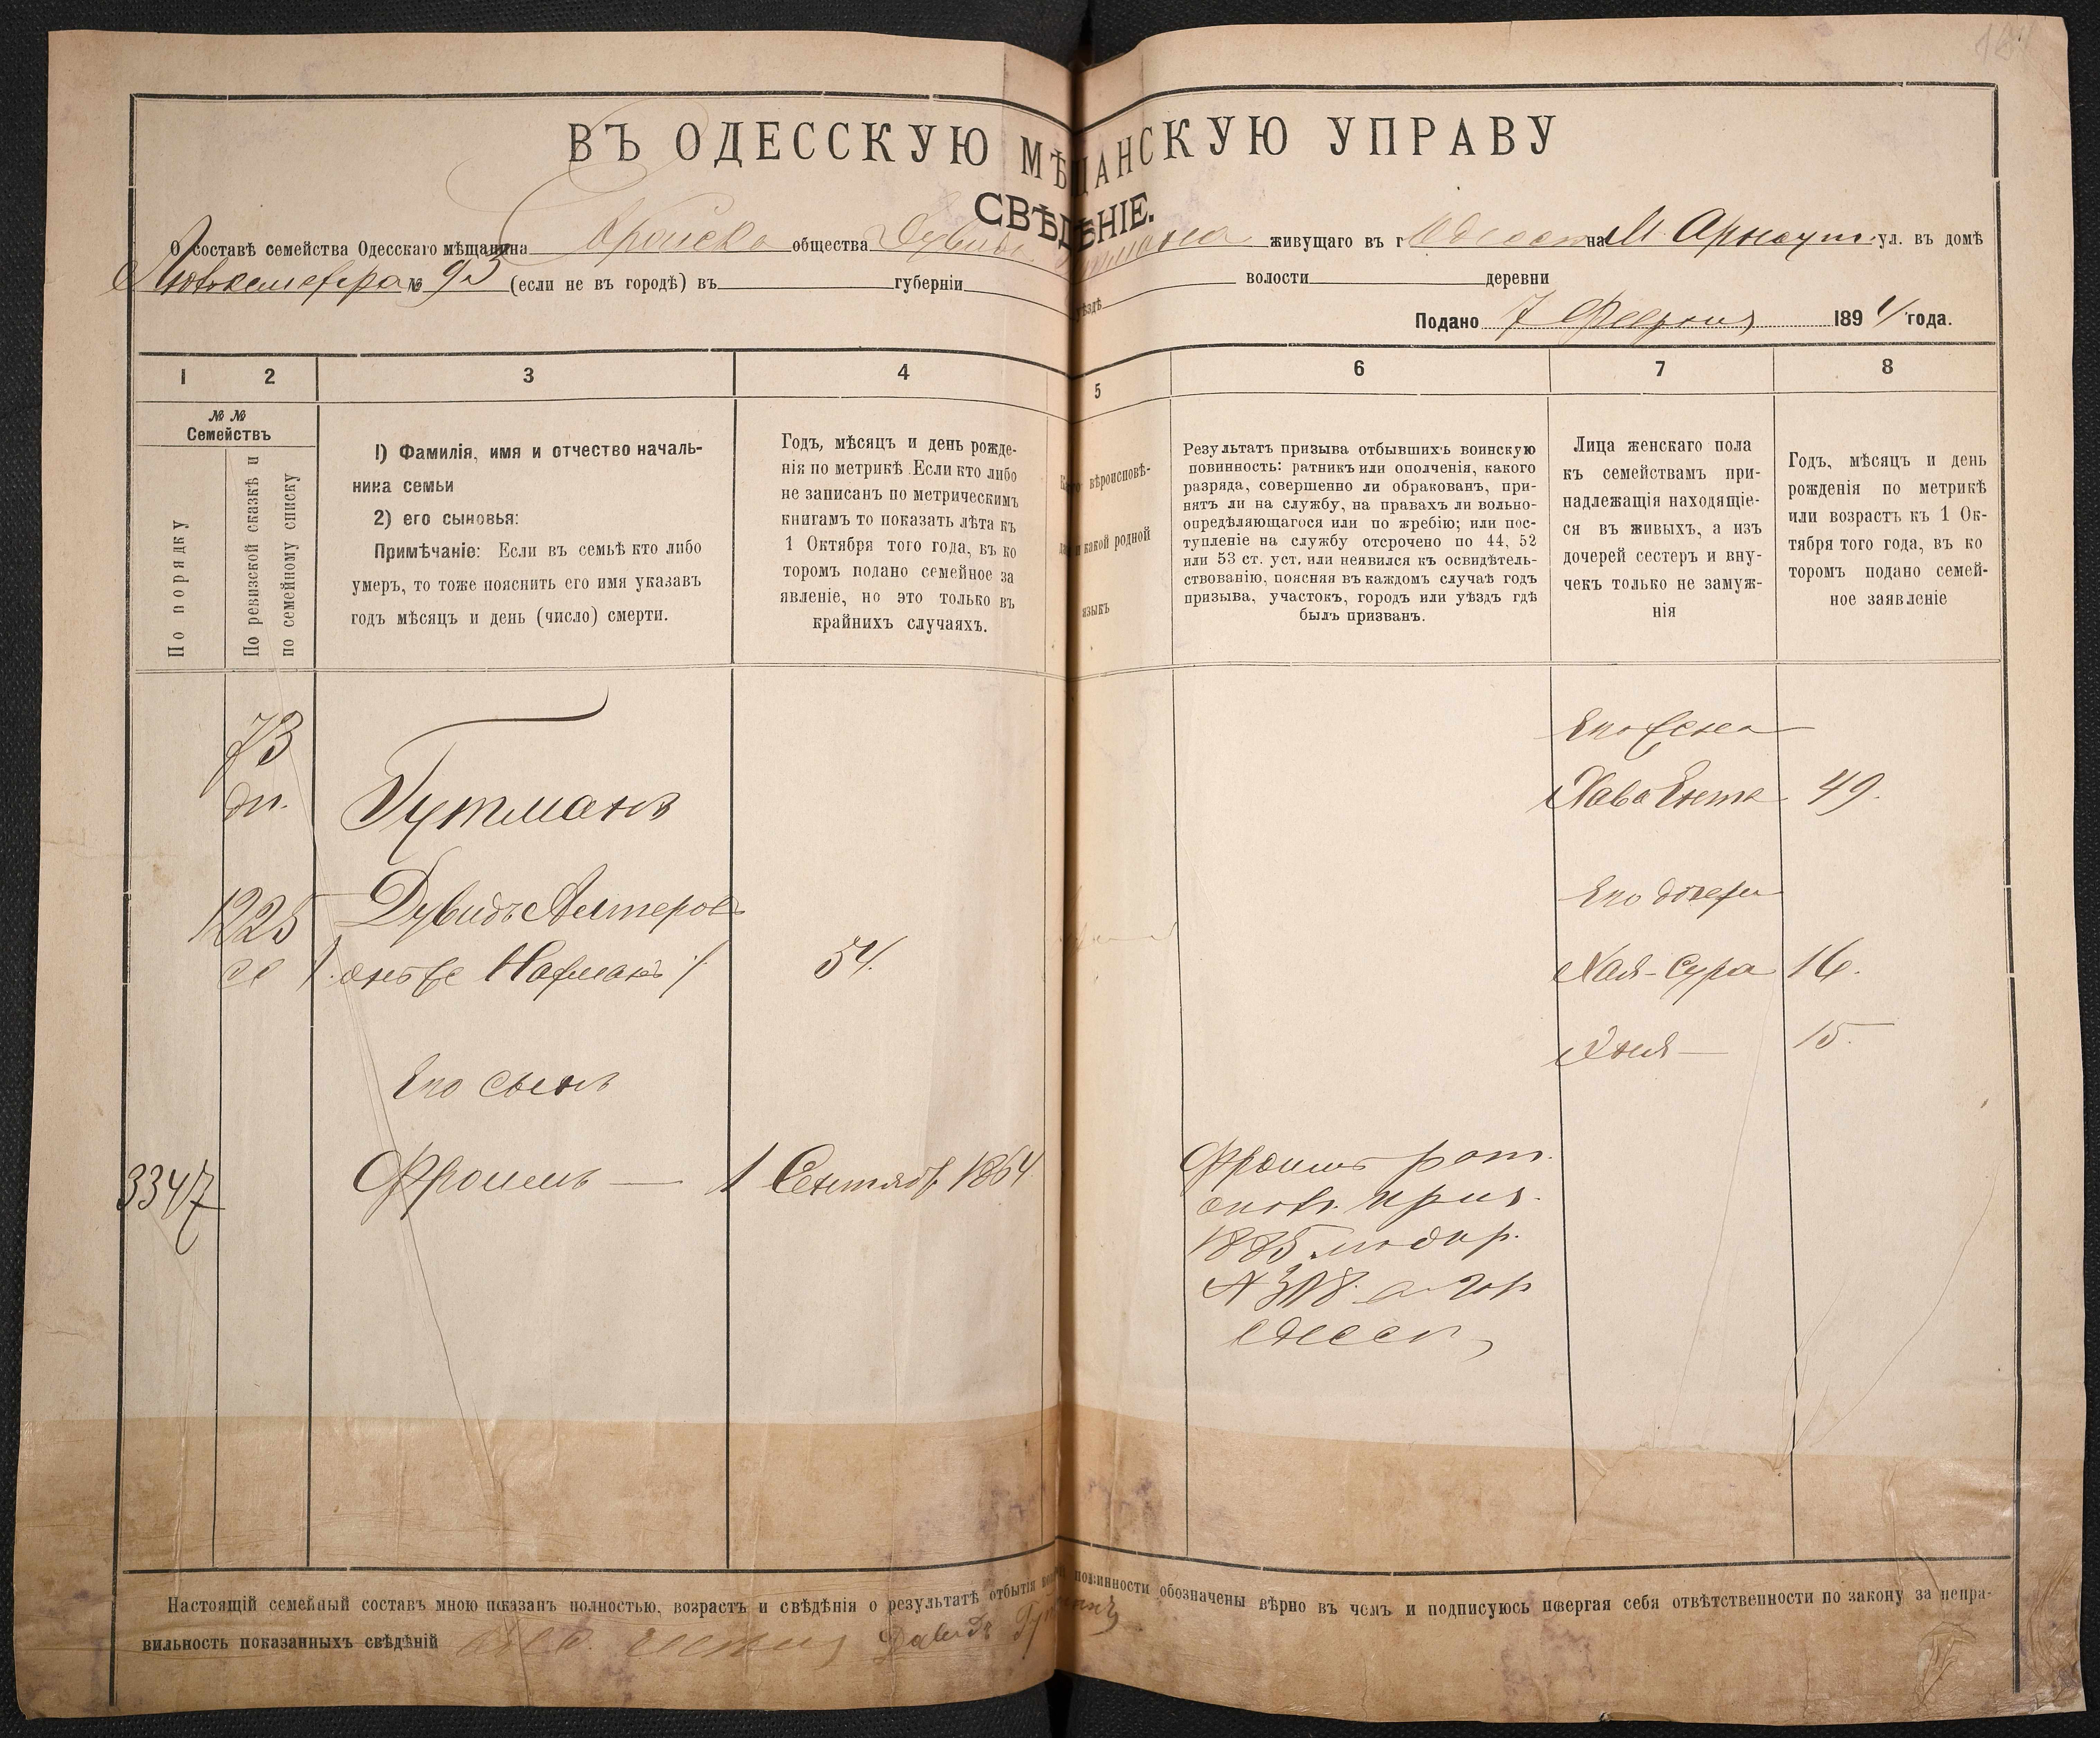 ВЪ ОДЕССКУЮ МѢЩАНСКУЮ УПРАВУ
СВѢДѢНІЕ.
О составѣ семейства Одесскаго мѣщанина общества живущаго въ г на М. Арнаут. ул. въ домѣ
№ 93 (если не въ городѣ) въ губерніи уѣздѣ волости деревни
Подано 7 1894 года.
1 2 3 4 5 6 7 8
№ №
Семействъ
По порядку
По ревизской сказкѣ и
по семейному списку
1) Фамилія, имя и отчество началь-
ника семьи
2) его сыновья:
Примѣчаніе: Если въ семьѣ кто либо
умеръ, то тоже пояснить его имя указавъ
годъ мѣсяцъ и день (число) смерти.
Годъ, мѣсяцъ и день рожде-
нія по метрикѣ. Если кто либо
не записанъ по метрическимъ
книгамъ то показать лѣта къ
1 Октября того года, въ ко
торомъ подано семейное за
явленіе, но это только въ
крайнихъ случаяхъ.
вѣроисповѣ-
и какой родной
языкъ
Результатъ призыва отбывшихъ воинскую
повинность: ратникъ или ополченія, какого
разряда, совершенно ли обракованъ, при-
нятъ ли на службу, на правахъ ли вольно-
опредѣляющагося или по жребію; или пос-
тупленіе на службу отсрочено по 44, 52
или 53 ст. уст. или неявился къ освидѣтель-
ствованію, поясняя въ каждомъ случаѣ годъ
призыва, участокъ, городъ или уѣздъ гдѣ
былъ призванъ.
Лица женскаго пола
къ семействамъ при-
надлежащія находящіе-
ся въ живыхъ, а изъ
дочерей сестеръ и вну-
чекъ только не замуж-
нія
Годъ, мѣсяцъ и день
рожденія по метрикѣ
или возрастъ къ 1 Ок-
тября того года, въ ко
торомъ подано семей-
ное заявленіе
73
Гутманъ
Его жена
Хава Ента 49.
1225 Дувидъ Алтеров
онъ же 54.
Его дочери
Хая-Сура 16.
15.
Его сынъ
3347 Фроимъ — 1 Сентяб 1864
Фроимъ рат.
опол. приз.
1885
Настоящій семейный составъ мною показанъ полностью, возрастъ и свѣдѣнія о результатѣ отбытія повинности обозначены вѣрно въ чемъ и подписуюсь повергая себя отвѣтственности по закону за непра-
вильность показанныхъ свѣдѣній Давидъ Гутманъ